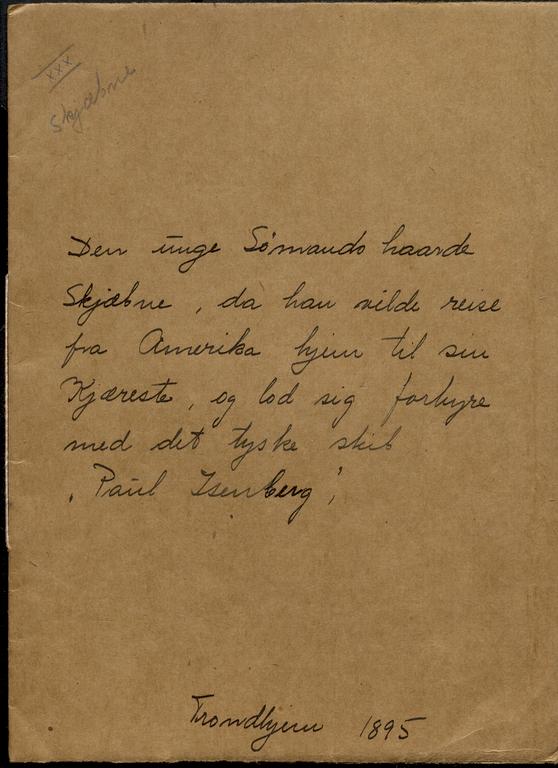 XXX
Skjæbne
Den unge Sømands haarde
Skjæbne, da han vilde reise
fra Amerika hjem til sin
Kjæreste, og lod sig forhyre
med det tyske skib
„Paul Isenberg",
Trondhjem 1895